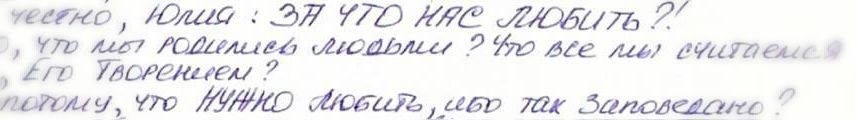 честно, Юлия: ЗА ЧТО НАС ЛЮБИТЬ?!
, что мы родились людьми? Что все мы считаемся
, Его Творением?
потому, что НУЖНО любить, ибо так заповедано?